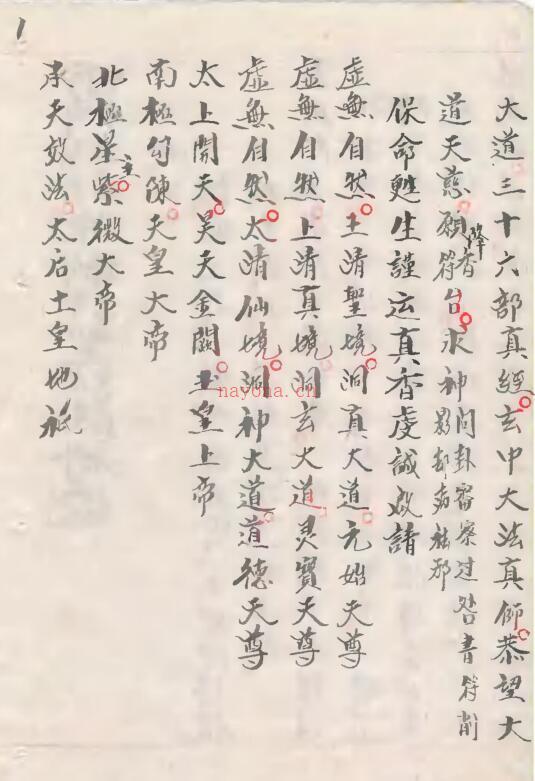 大道三十六部真經玄中大法真师恭望大
道天慈願降香符台水神问卦審察过咎書符削
影却病祛邪
保命甦生謹运真香虔誠啟請
虛無自然玉清聖境洞真大道元始天尊
虛無自然上清真境洞玄大道灵寶天尊
虛無自然太清仙境洞神大道道德天尊
太上開天昊天金闕玉皇上帝
南極勾陳天皇大帝
北極星主紫微大帝
承天效法太后土皇地祇
1
nayona.cn